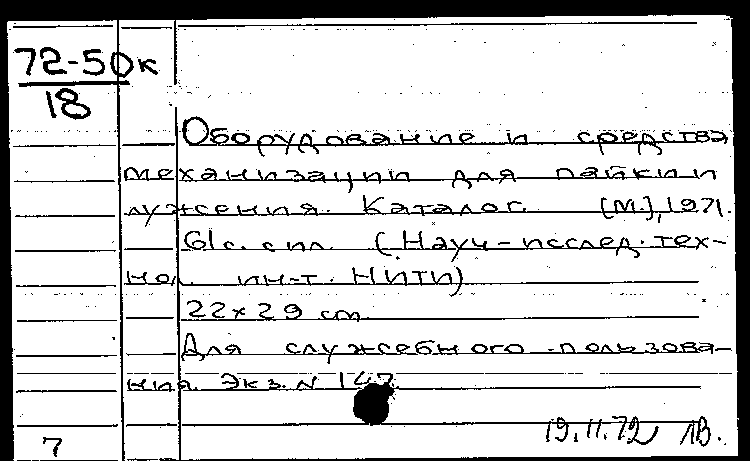 72-50к
18
Оборудование и средства
механизации для пайки и
лужения. Каталог. [М.], 1971.
61 с. с ил. (Науч-исслед. тех-
нол. ин-т. НИТИ)
22×29 см
Для служебного пользова-
ния. Экз. N 147
19.11.72 ЛВ.
7